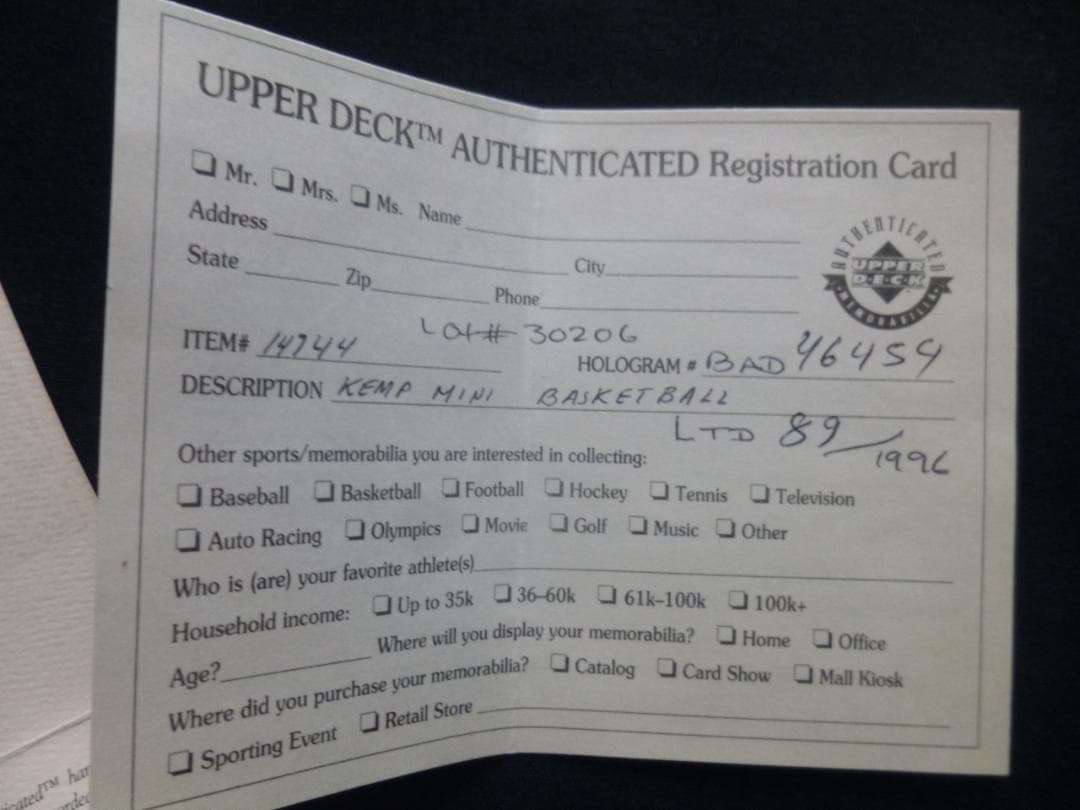 UPPER DECK™ AUTHENTICATED Registration Card
❏ Mr. ❏ Mrs. ❏ Ms. Name
Address City
State Zip Phone
AUTHENTICATED
UPPER
DECK
MEMORABILIA
LOT# 30206
ITEM# 14744 HOLOGRAM # BAD 46454
DESCRIPTION KEMP MINI BASKETBALL
LTD 89/1996
Other sports/memorabilia you are interested in collecting:
❏ Baseball ❏ Basketball ❏ Football ❏ Hockey ❏ Tennis ❏ Television
❏ Auto Racing ❏ Olympics ❏ Movie ❏ Golf ❏ Music ❏ Other
Who is (are) your favorite athlete(s)
Household income: ❏ Up to 35k ❏ 36–60k ❏ 61k–100k ❏ 100k+
Age? Where will you display your memorabilia? ❏ Home ❏ Office
Where did you purchase your memorabilia? ❏ Catalog ❏ Card Show ❏ Mall Kiosk
❏ Sporting Event ❏ Retail Store